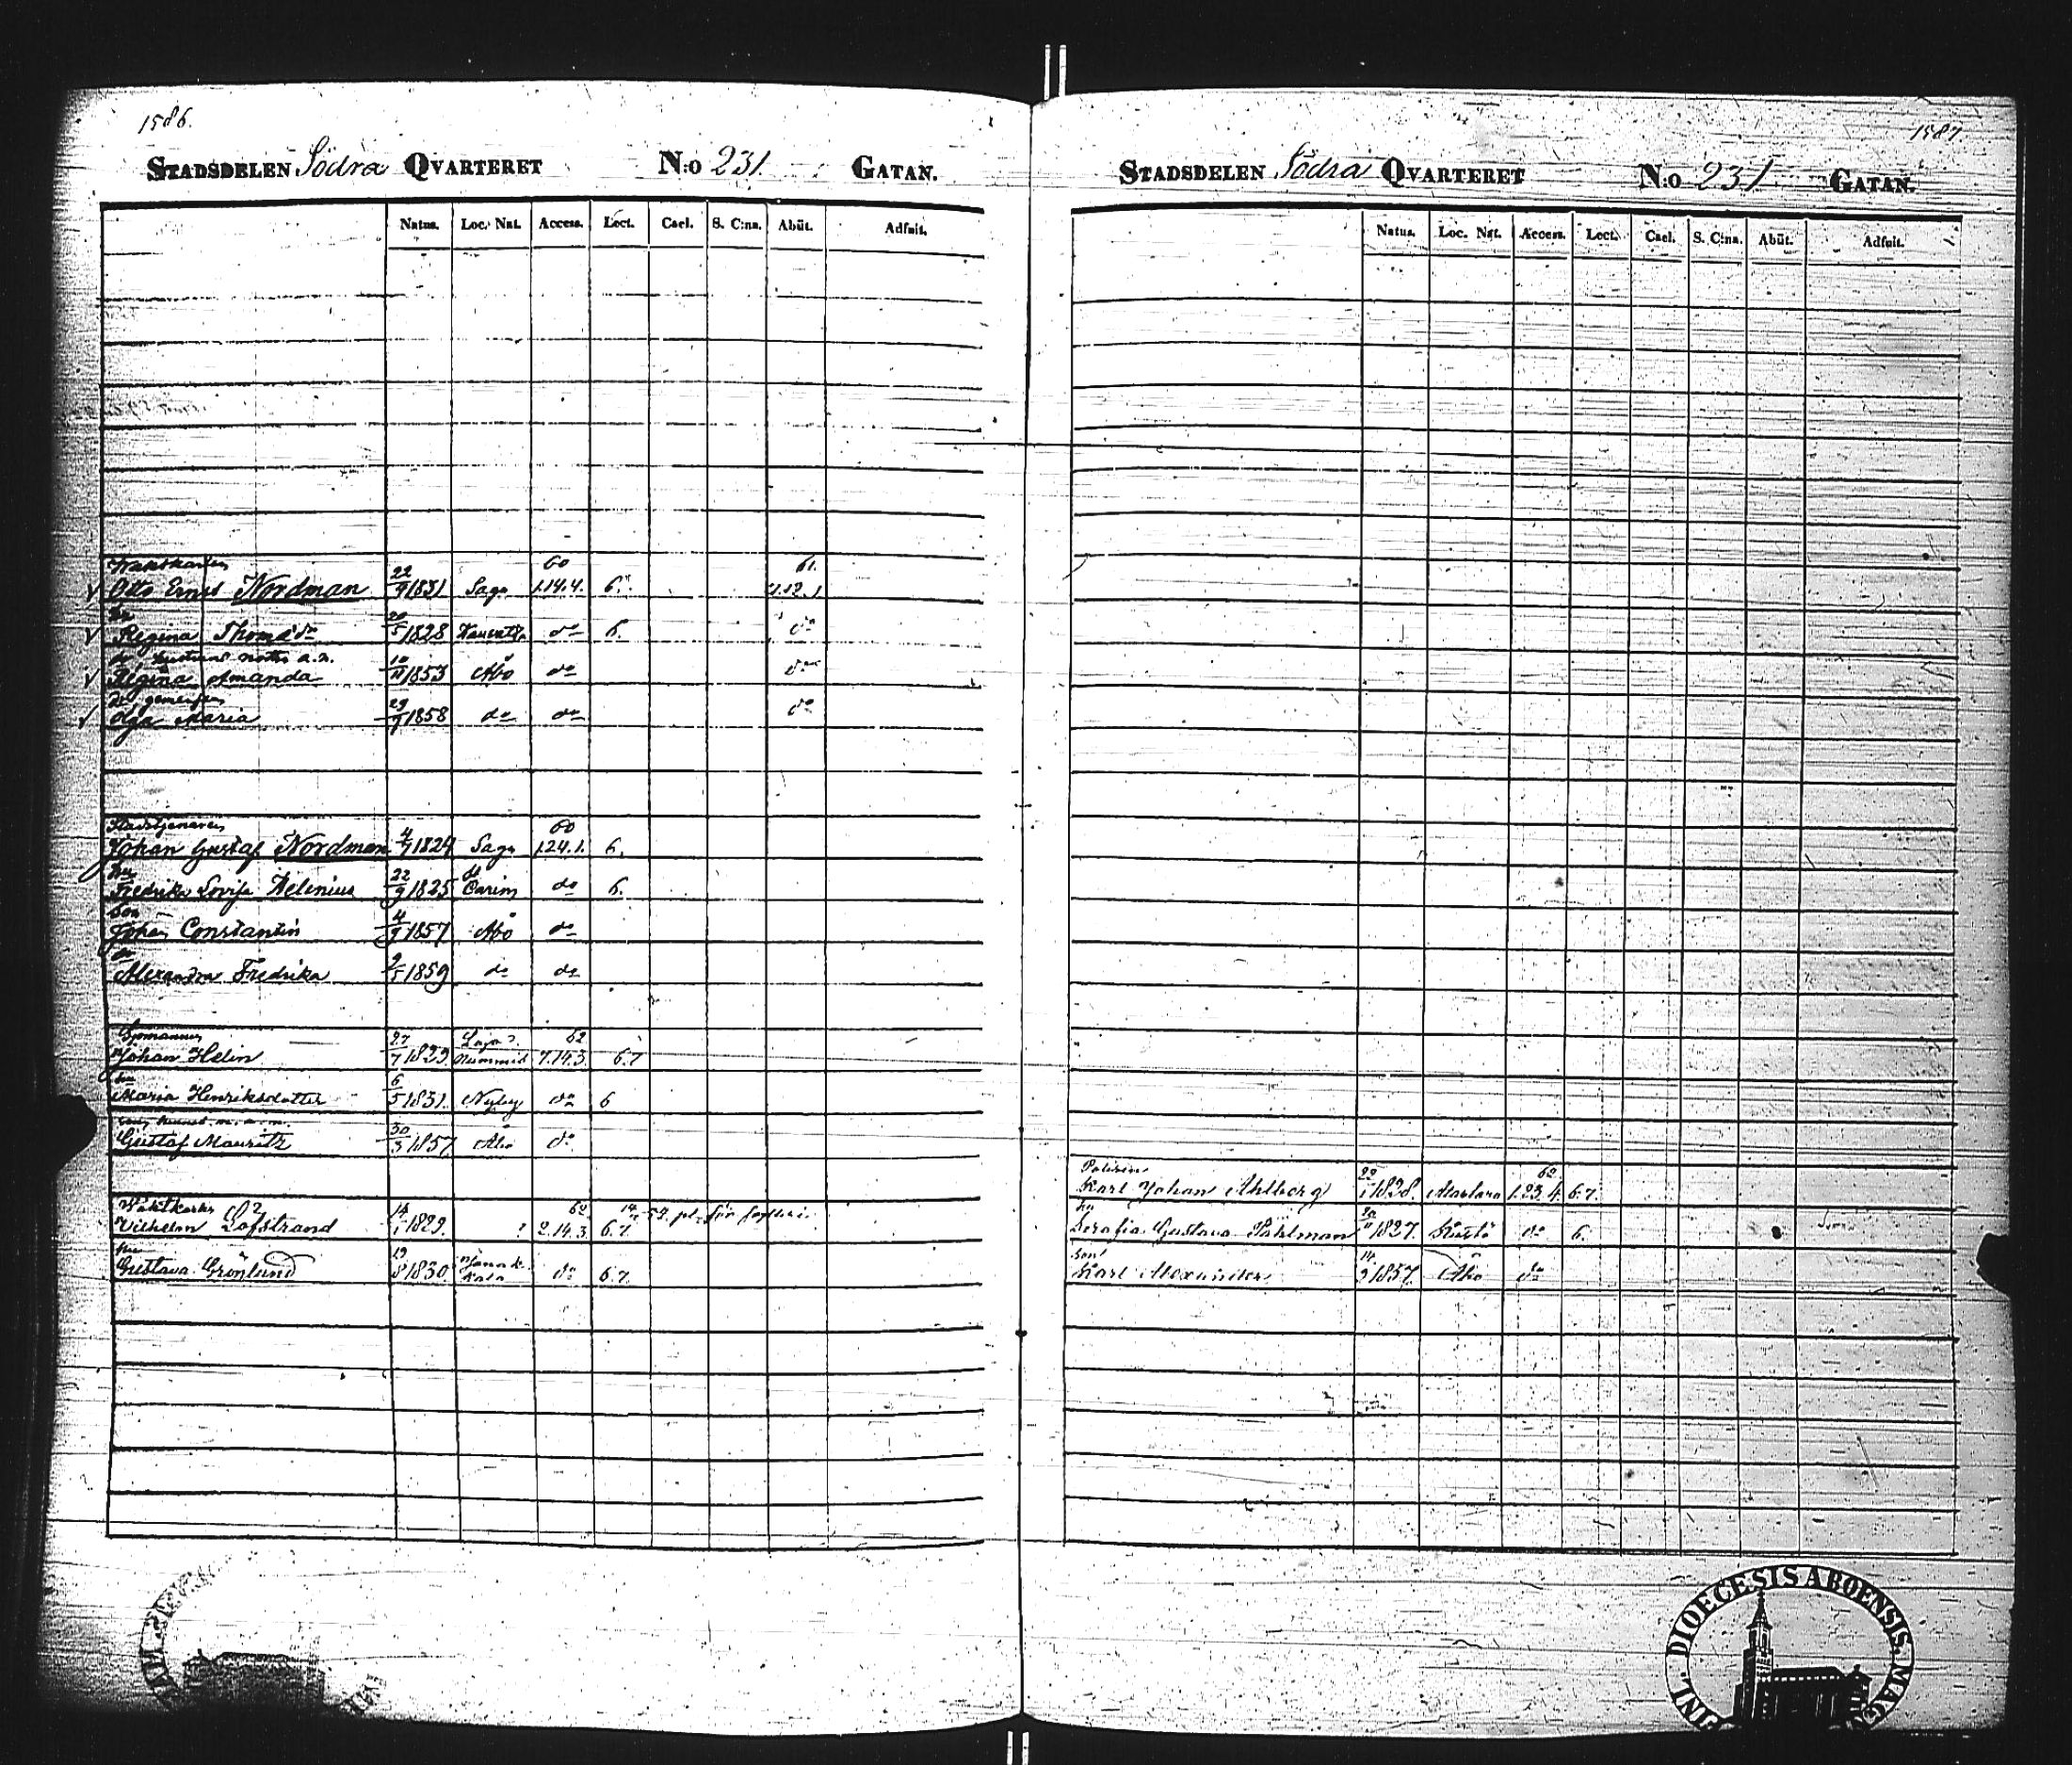 1586.
STADSDELEN Södra QVARTERET N:o 231. GATAN.
Natus. Loc. Nat. Access. Lect. Cael. S. C:na. Abüt. Adfuit.
60 61.
Otto Ernst Nordman 22/9 1831 Sagu 1.14.4. 6.
hu
Regina Thomasdr 20/5 1828 do 6. do
Regina Amanda 10/11 1853 Åbo do do
Olga Maria 29/9 1858 do do do
Stadstjenaren 60
Johan Gustaf Nordman 4/7 1824 Sagu 1.24.1. 6.
hu do
Fredrika Lovisa Helenius 22/9 1825 Carin do 6.
Son
Johan Constantin 4/9 1857 Åbo do
dr
Alexandra Fredrika 9/5 1859 do do
62
Johan Helin 27/7 1823 Nummis 7.14.3. 6.7
hu
Maria Henriksdotter 6/5 1831. Nyby do 6
Gustaf Mauritz 30/3 1857 Åbo do
Waktkarlen 62
Vilhelm Löfstrand 14/1 1829. ? 2.14.3. 6.7.
hu
Gustava Grönlund 19/8 1830 do 6.7.
1587
STADSDELEN Södra QVARTERET N:o 231 GATAN.
Natus. Loc. Nat. Access. Lect. Cael. S. C:na. Abüt. Adfuit.
Polisen 62
Karl Johan Ahlberg 1828. 1.23.4. 6.7.
hu
Serafia Gustava Påhlman 20/11 1827. do 6.
son
Karl Alexander 14/9 1857. Åbo do
DIOECESIS ABOENSIS